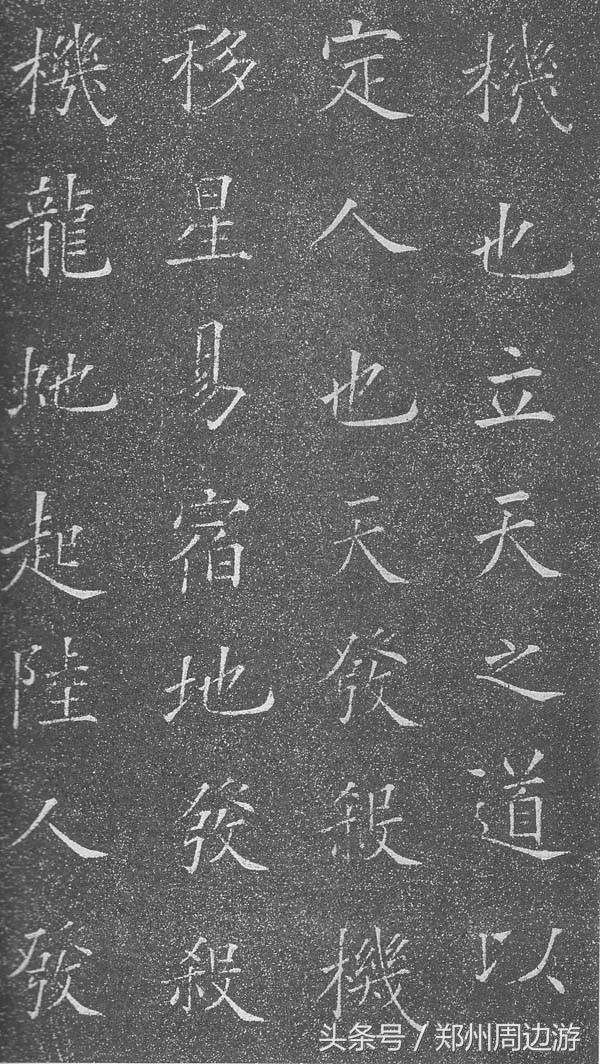 機也立天之道以
定人也天發殺機
移星易宿地發殺
機龍虵起陸人發
头条号 / 郑州周边游